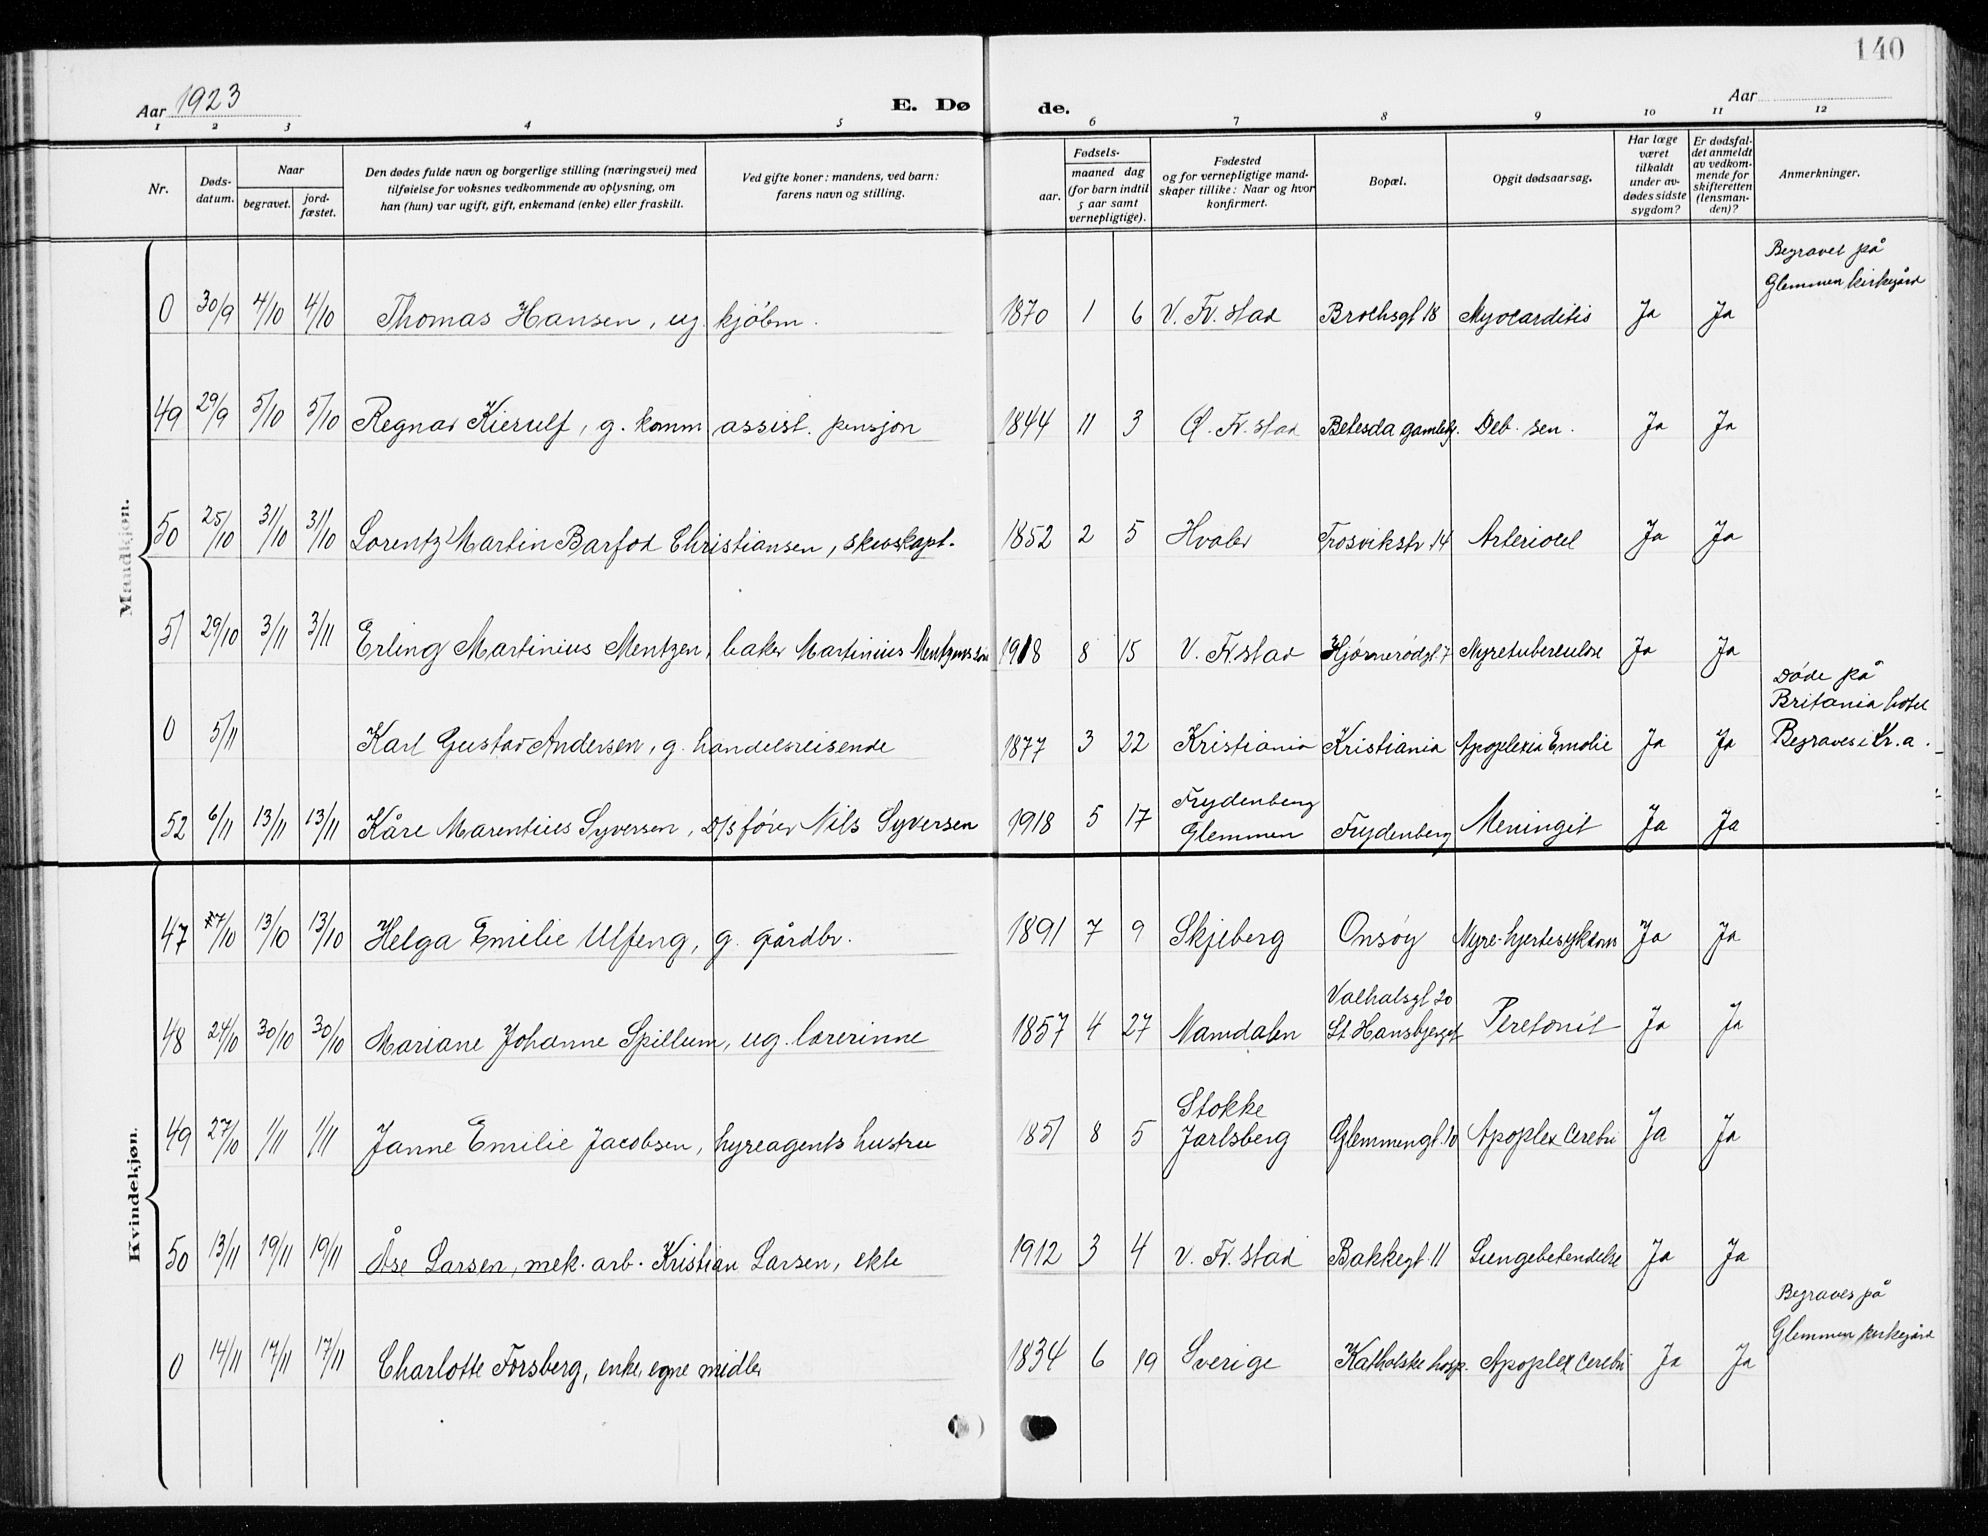 140
Aar 1923
E. Dø de.
Aar
1 2 3 4 5 6 7 8 9 10 11 12
Nr.
Døds-datum.
Naar
begravet.
jord-fæstet.
Den dødes fulde navn og borgerlige stilling (næringsvei) med
tilføielse for voksnes vedkommende av oplysning, om
han (hun) var ugift, gift, enkemand (enke) eller fraskilt.
Ved gifte koner: mandens, ved barn:
farens navn og stilling.
Fødsels-
aar.
maaned dag
(for barn indtil
5 aar samt
vernepligtige).
Fødested
og for vernepligtige mand-
skaper tillike: Naar og hvor
konfirmert.
Bopæl.
Opgit dødsaarsag.
Har læge
været
tilkaldt
under av-
dødes sidste
sygdom?
Er dødsfal-
det anmeldt
av vedkom-
mende for
skifteretten
(lensman-
den)?
Anmerkninger.
Mandkjøn.
Begravet på
Glemmen kirkegård
0 30/9 4/10 4/10 Thomas Hansen, ug. kjøbm. 1870 1 6 V. Fr. stad Brochsgt 18 Myocarditis Ja Ja
49 29/9 5/10 5/10 Regnar Kierulf, g. komm assist. pensjon 1844 11 3 Ø. Fr. stad Betesda gamleh. Deb. sen. Ja Ja
50 25/10 31/10 31/10 Lorentz Martin Barfod Christiansen, skibskapt. 1852 2 5 Hvaler Trosvikstr 14 Ja Ja
51 29/10 3/11 3/11 Erling Martinius Mentzen, baker Martinius Mentzens søn 1918 8 15 V. Fr. stad Hjørnerødgt 7 Nyretuberculose Ja Ja
Døde på
Britania hotel
0 5/11 Karl Gustav Andersen, g. handelsreisende 1877 3 22 Kristiania Kristiania Apoplexia Ja Ja Begraves i Kr.a.
Frydenberg
52 6/11 13/11 13/11 Kåre Marentius Syversen, D/S fører Nils Syversen 1918 5 17 Glemmen Frydenberg Meningit Ja Ja
Kvindekjøn.
47 7/10 13/10 13/10 Helga Emilie Ulfeng, g. gårdbr. 1891 7 9 Skjeberg Onsøy Nyre-hjertesykdom Ja Ja
Valhalsgt 20
48 24/10 30/10 30/10 Mariane Johanne Spillum, ug. lærerinne 1857 4 27 Namdalen St Hansbjerget Peretonit Ja Ja
Stokke
49 27/10 1/11 1/11 Janne Emilie Jacobsen, hyreagents hustru 1851 8 5 Jarlsberg Glemmengt 10 Apoplex Cerebri Ja Ja
50 13/11 19/11 19/11 Åse Larsen, mek. arb. Kristian Larsen, ekte 1912 3 4 V. Fr. stad Bakkegt 11 Lungebetendelse Ja Ja
Begraves på
Glemmen kirkegård
0 14/11 17/11 17/11 Charlotte Forsberg, enke, egne midler 1834 6 19 Sverige Katholske hosp. Apoplex Cerebri Ja Ja